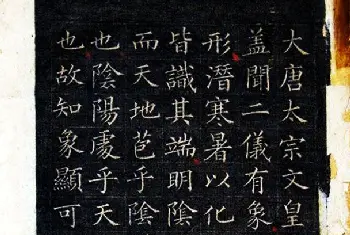 大唐太宗文皇
蓋聞二儀有象
形潛寒暑以化
皆識其端明陰
而天地苞乎陰
也陰陽處乎天
也故知象顯可